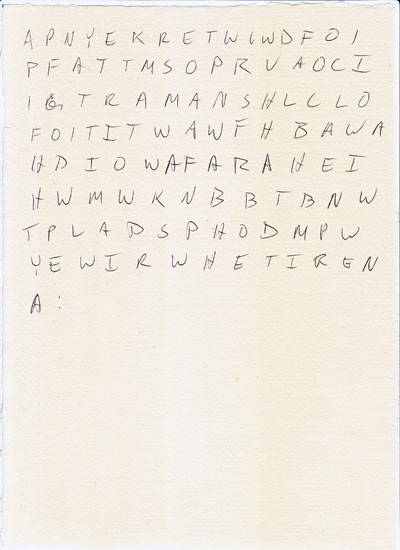 A P N Y E K R E T W I W D F O I
P F A T T M S O P R V A O C I
I G T R A M A N S H L C L O
F O I T I T W A W F H B A W A
H D I O W A F A R A H E I
H W M W K N B B T B N W
T P L A D S P H O D M P W
Y E W I R W H E T I R E N
A :